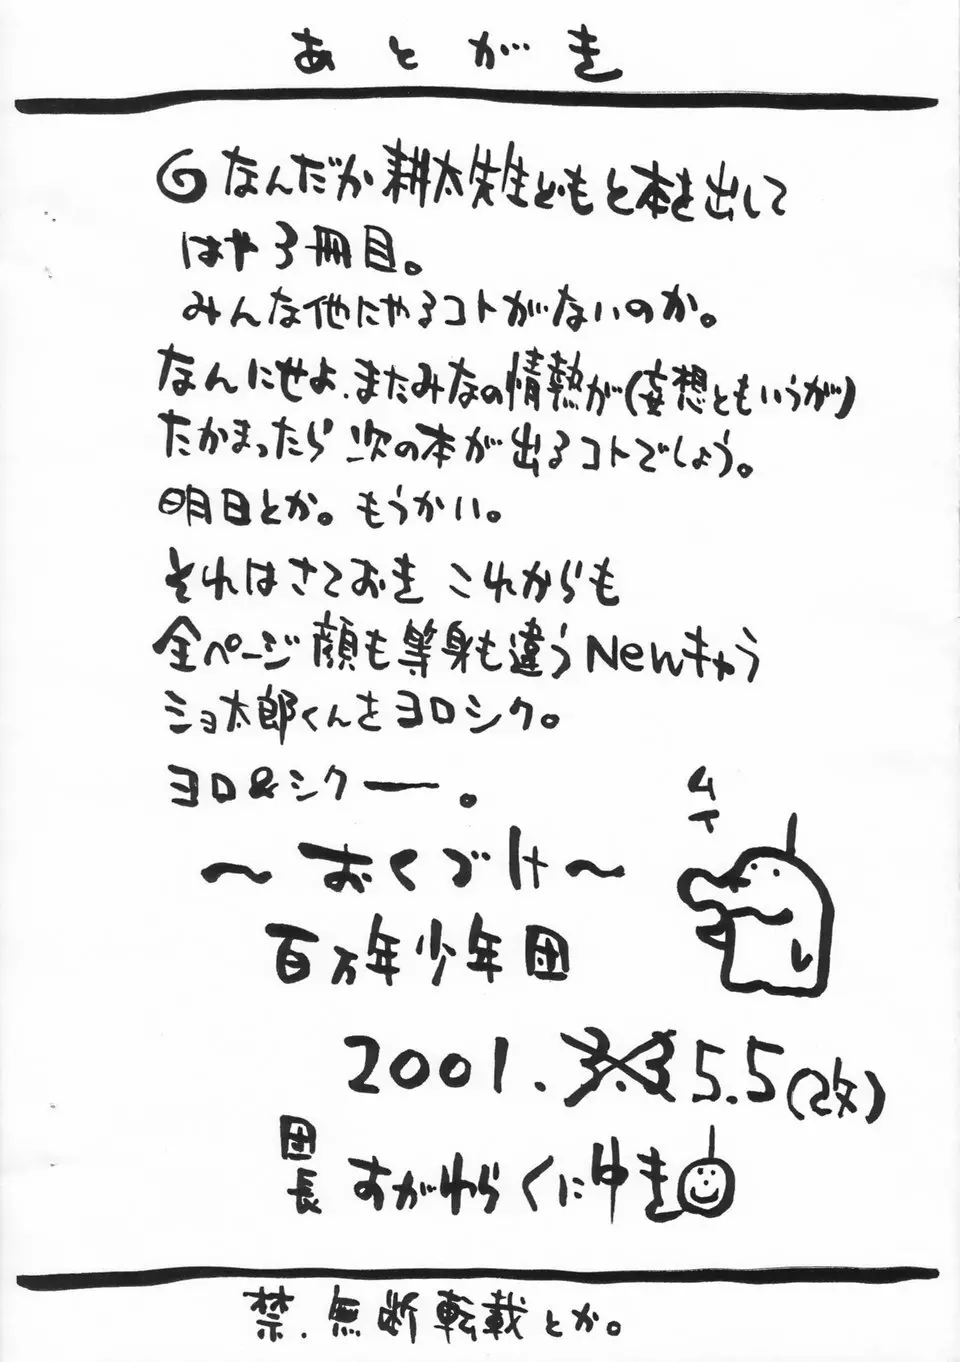 あとがき
なんだか耕太先生どもと本を出して
はや3冊目。
みんな他にやるコトがないのか。
なんにせよ、またみなの情熱が(妄想ともいうが)
たかまったら次の本が出るコトでしょう。
明日とか。もうかい。
それはさておき これからも
全ページ顔も等身も違うNewキャラ
ショ太郎くんをヨロシク。
ヨロ&シクー。
ムイ
〜おくづけ〜
百万年少年団
2001.3.3 5.5(改)
団長 すがわらくにゆき
禁、無断転載とか。